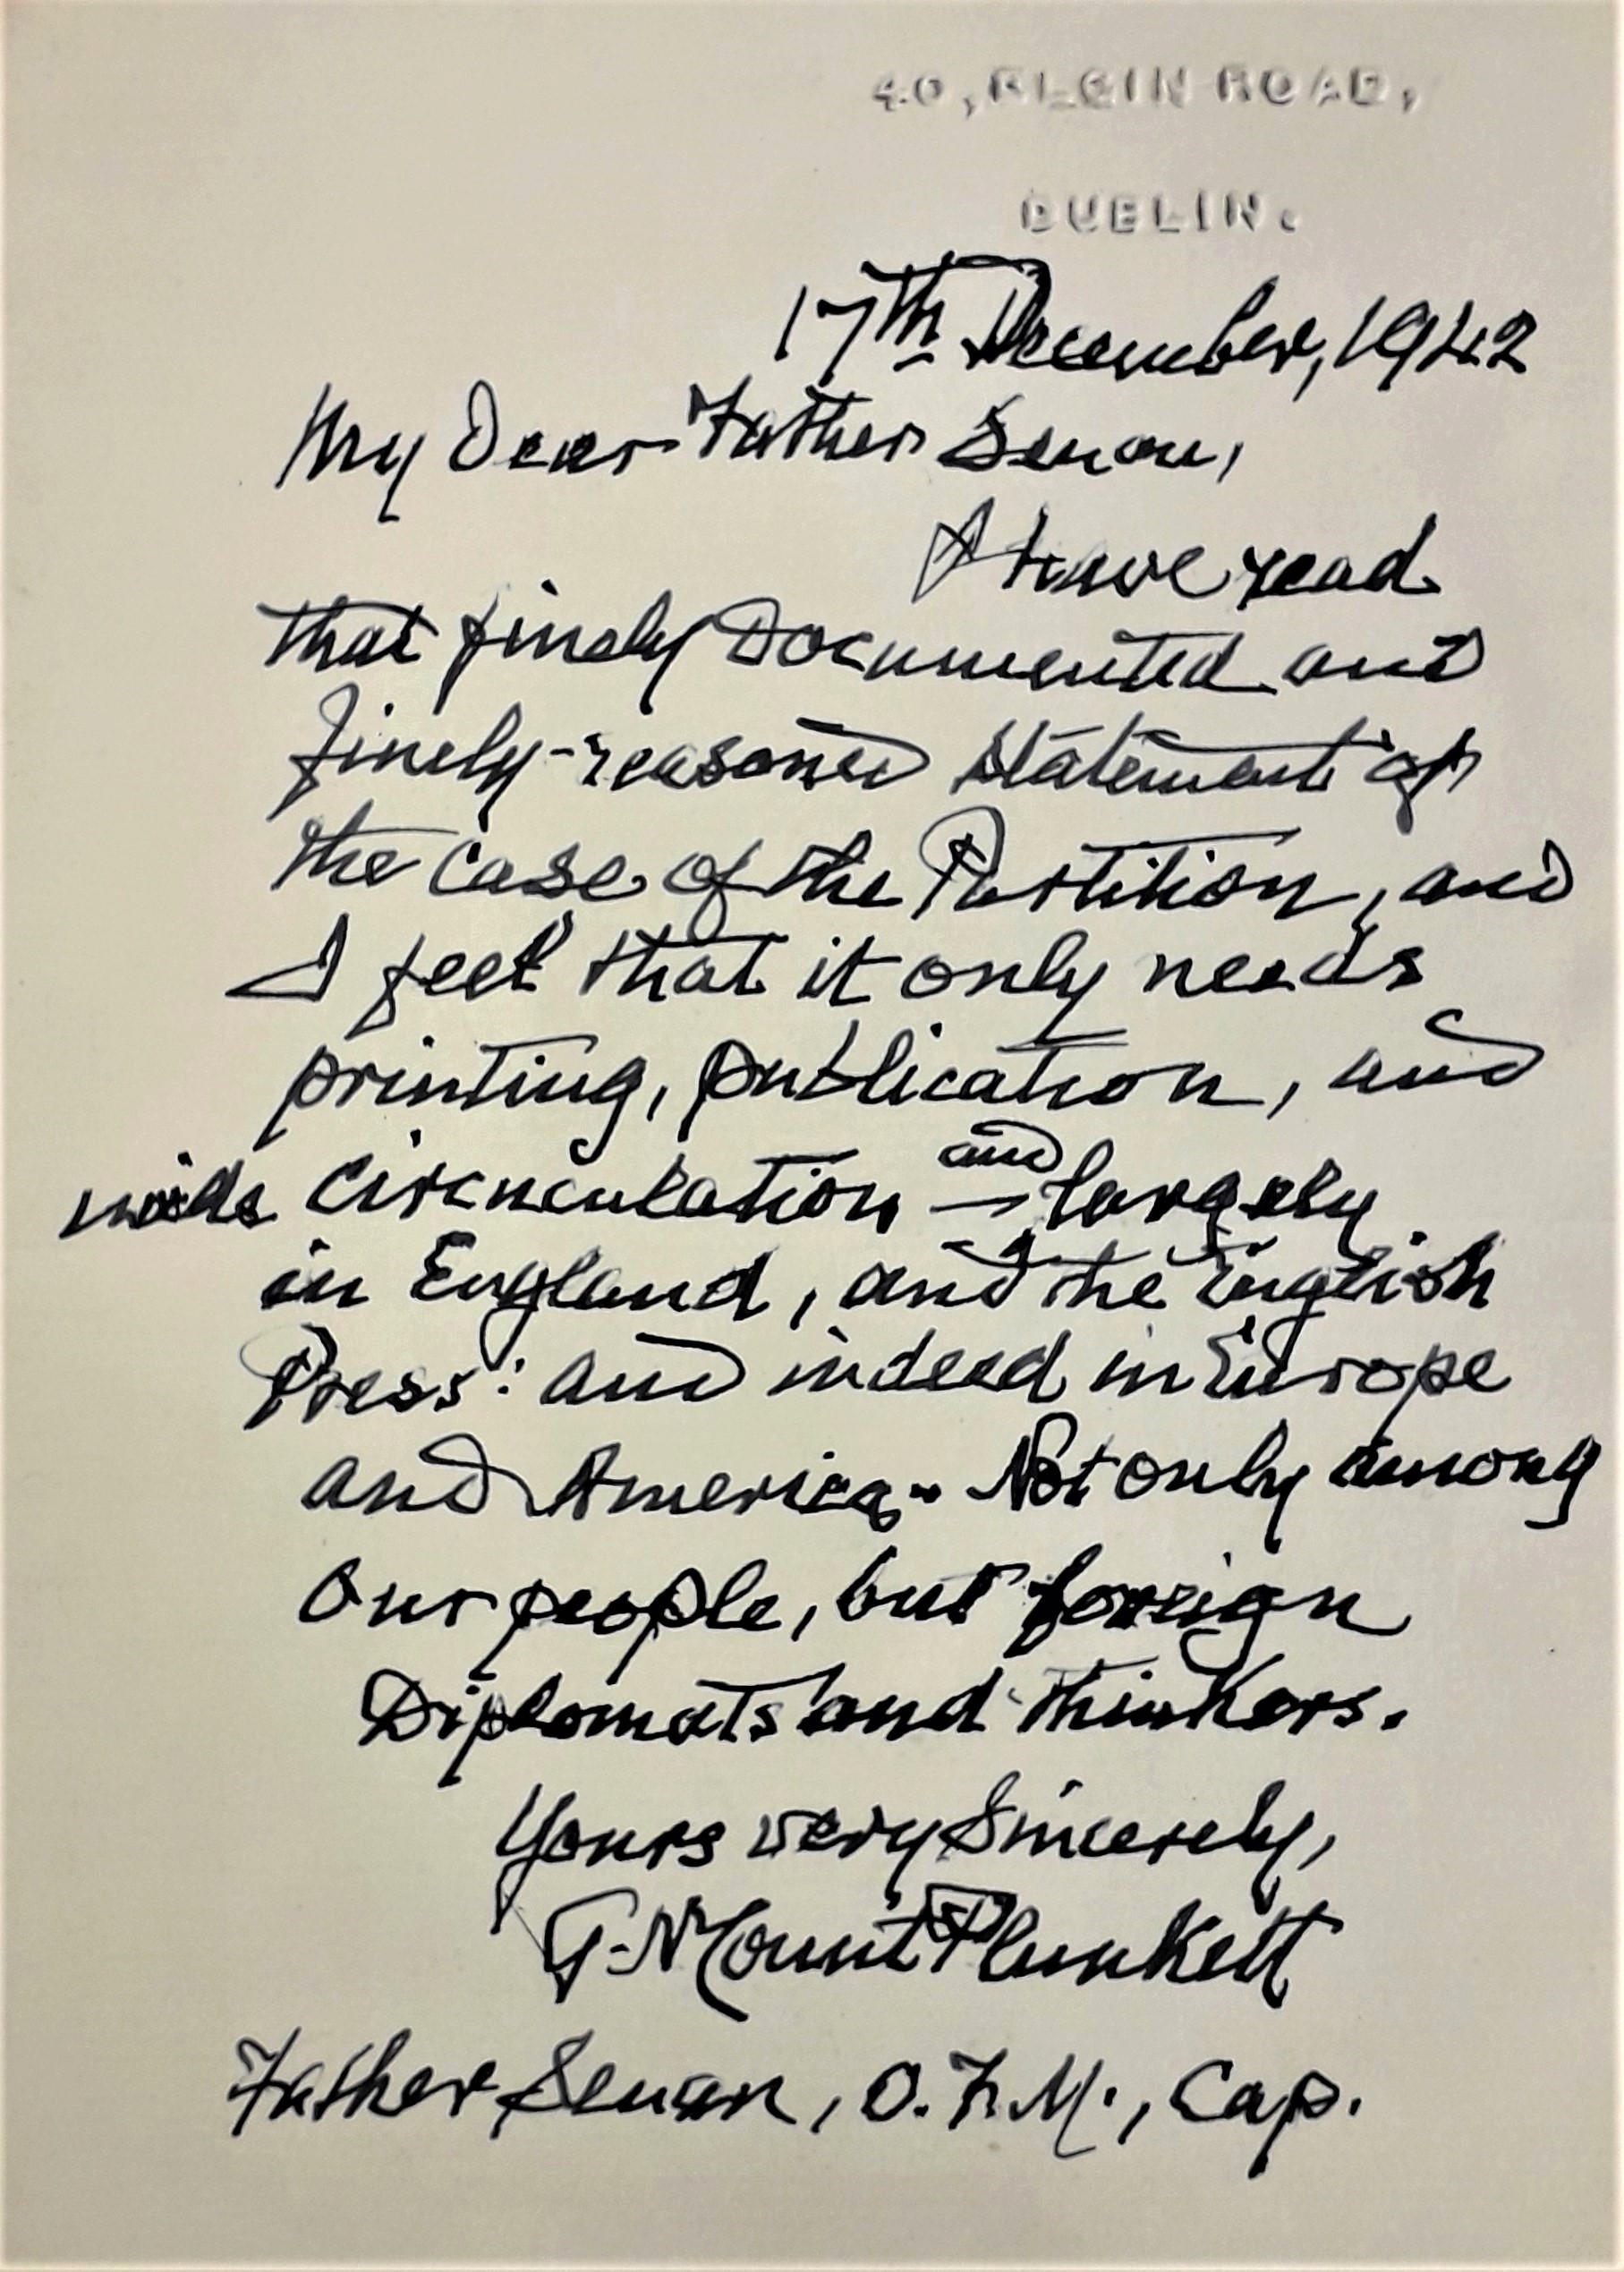 40, ELGIN ROAD,
DUBLIN.
17th December, 1942
My Dear Father Senan,
I have read
that finely documented and
finely-reasoned statement of
the case of the Partition, and
I feel that it only needs
printing, publication, and
wide circulation – and largely
in England, and the English
Press: and indeed in Europe
and America. Not only among
our people, but foreign
Diplomats and thinkers.
Yours very Sincerely,
G. N. Count Plunkett
Father Senan, O.F.M., Cap.